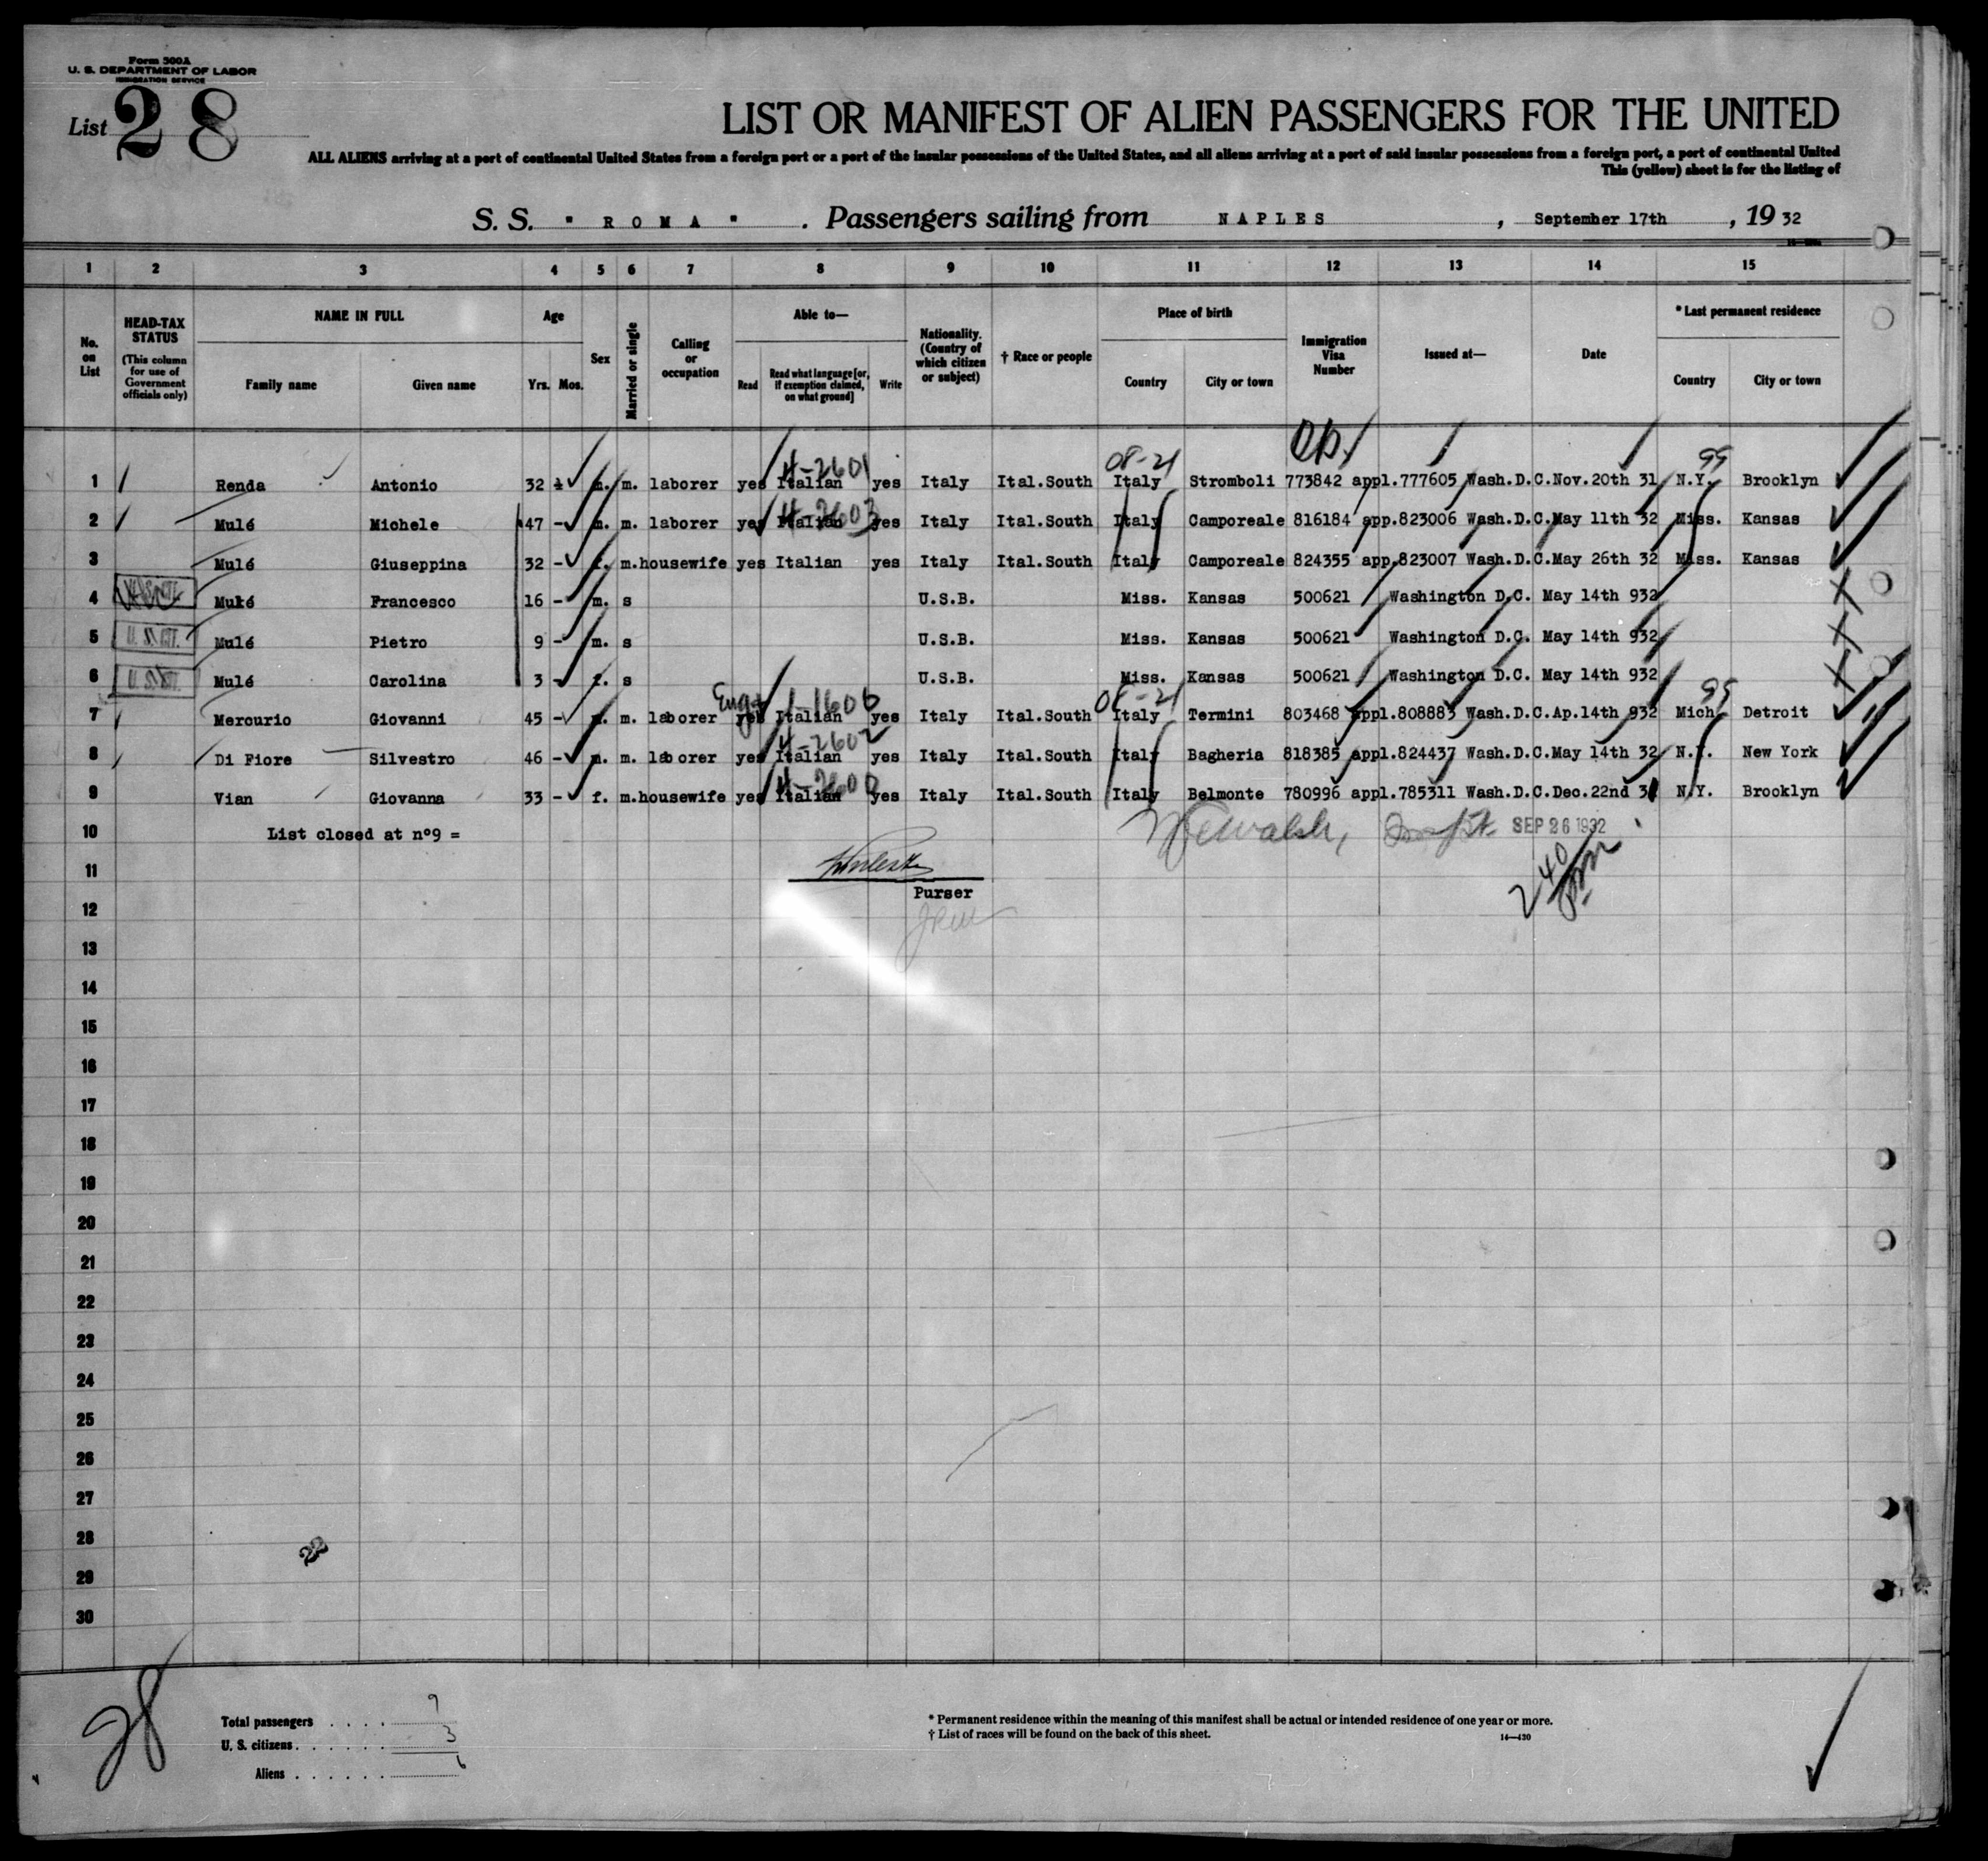 Form 500A
U. S. DEPARTMENT OF LABOR
IMMIGRATION SERVICE
List 28
LIST OR MANIFEST OF ALIEN PASSENGERS FOR THE UNITED
ALL ALIENS arriving at a port of continental United States from a foreign port or a port of the insular possessions of the United States, and all aliens arriving at a port of said insular possessions from a foreign port, a port of continental United
This (yellow) sheet is for the listing of
S. S. " ROMA " . Passengers sailing from NAPLES , September 17th , 19 32
1 2 3 4 5 6 7 8 9 10 11 12 13 14 15
No. on List
HEAD-TAX STATUS (This column for use of Government officials only)
NAME IN FULL
Family name Given name
Age
Yrs. Mos.
Sex
Married or single
Calling or occupation
Able to—
Read Read what language [or, if exemption claimed, on what ground] Write
Nationality. (Country of which citizen or subject)
† Race or people
Place of birth
Country City or town
Immigration Visa Number
Issued at—
Date
* Last permanent residence
Country City or town
08-21 99
4-2601
1 Renda Antonio 32 m. m. laborer yes Italian yes Italy Ital.South Italy Stromboli 773842 appl.777605 Wash.D.C. Nov.20th 31 N.Y. Brooklyn
4-2603
2 Mulé Michele 47 - m. m. laborer yes Italian yes Italy Ital.South Italy Camporeale 816184 app.823006 Wash.D.C. May 11th 32 Miss. Kansas
3 Mulé Giuseppina 32 - f. m. housewife yes Italian yes Italy Ital.South Italy Camporeale 824355 app.823007 Wash.D.C. May 26th 32 Miss. Kansas
4 Mulé Francesco 16 - m. s U.S.B. Miss. Kansas 500621 Washington D.C. May 14th 932
5 U.S. CIT. Mulé Pietro 9 - m. s U.S.B. Miss. Kansas 500621 Washington D.C. May 14th 932
6 U.S. CIT. Mulé Carolina 3 - f. s U.S.B. Miss. Kansas 500621 Washington D.C. May 14th 932
Eng 1-1606 99
7 Mercurio Giovanni 45 - m. m. laborer yes Italian yes Italy Ital.South Italy Termini 803468 appl.808883 Wash.D.C. Ap.14th 932 Mich. Detroit
4-2602
8 Di Fiore Silvestro 46 - m. m. laborer yes Italian yes Italy Ital.South Italy Bagheria 818385 appl.824437 Wash.D.C. May 14th 32 N.Y. New York
4-2600
9 Vian Giovanna 33 - f. m. housewife yes Italian yes Italy Ital.South Italy Belmonte 780996 appl.785311 Wash.D.C. Dec.22nd 31 N.Y. Brooklyn
10 List closed at n°9 = Walsh, SEP 26 1932
11
240
Purser
12
13
14
15
16
17
18
19
20
21
22
23
24
25
26
27
28
22
29
30
28
Total passengers . . . . 9
U. S. citizens . . . . . . 3
Aliens . . . . . . 6
* Permanent residence within the meaning of this manifest shall be actual or intended residence of one year or more.
† List of races will be found on the back of this sheet.
14—420